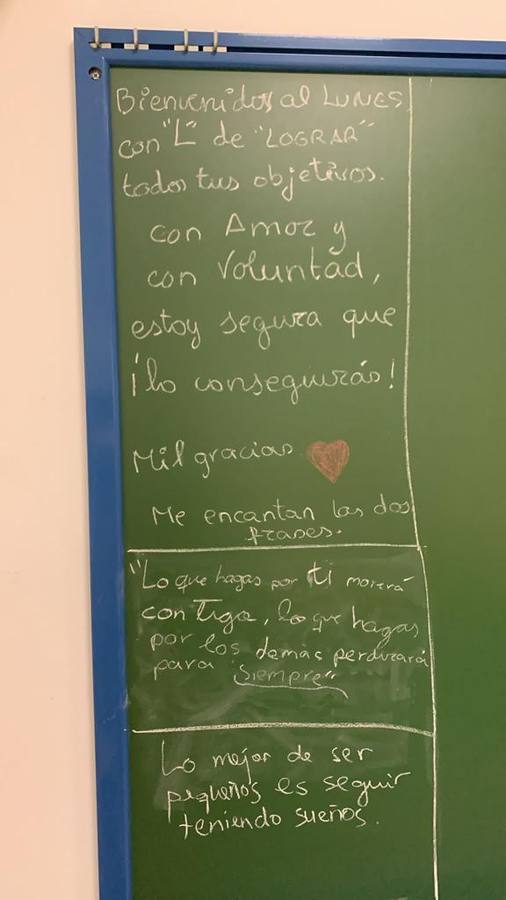 Bienvenidos al LUNES
con "L" de "LOGRAR"
todos tus objetivos.
con Amor y
con Voluntad,
estoy segura que
¡lo conseguirás!
Mil gracias.
Me encantan las dos
frases.
"Lo que hagas por ti morirá
conTigo, lo que hagas
por los demás perdurará
para siempre"
Lo mejor de ser
pequeños es seguir
teniendo sueños.